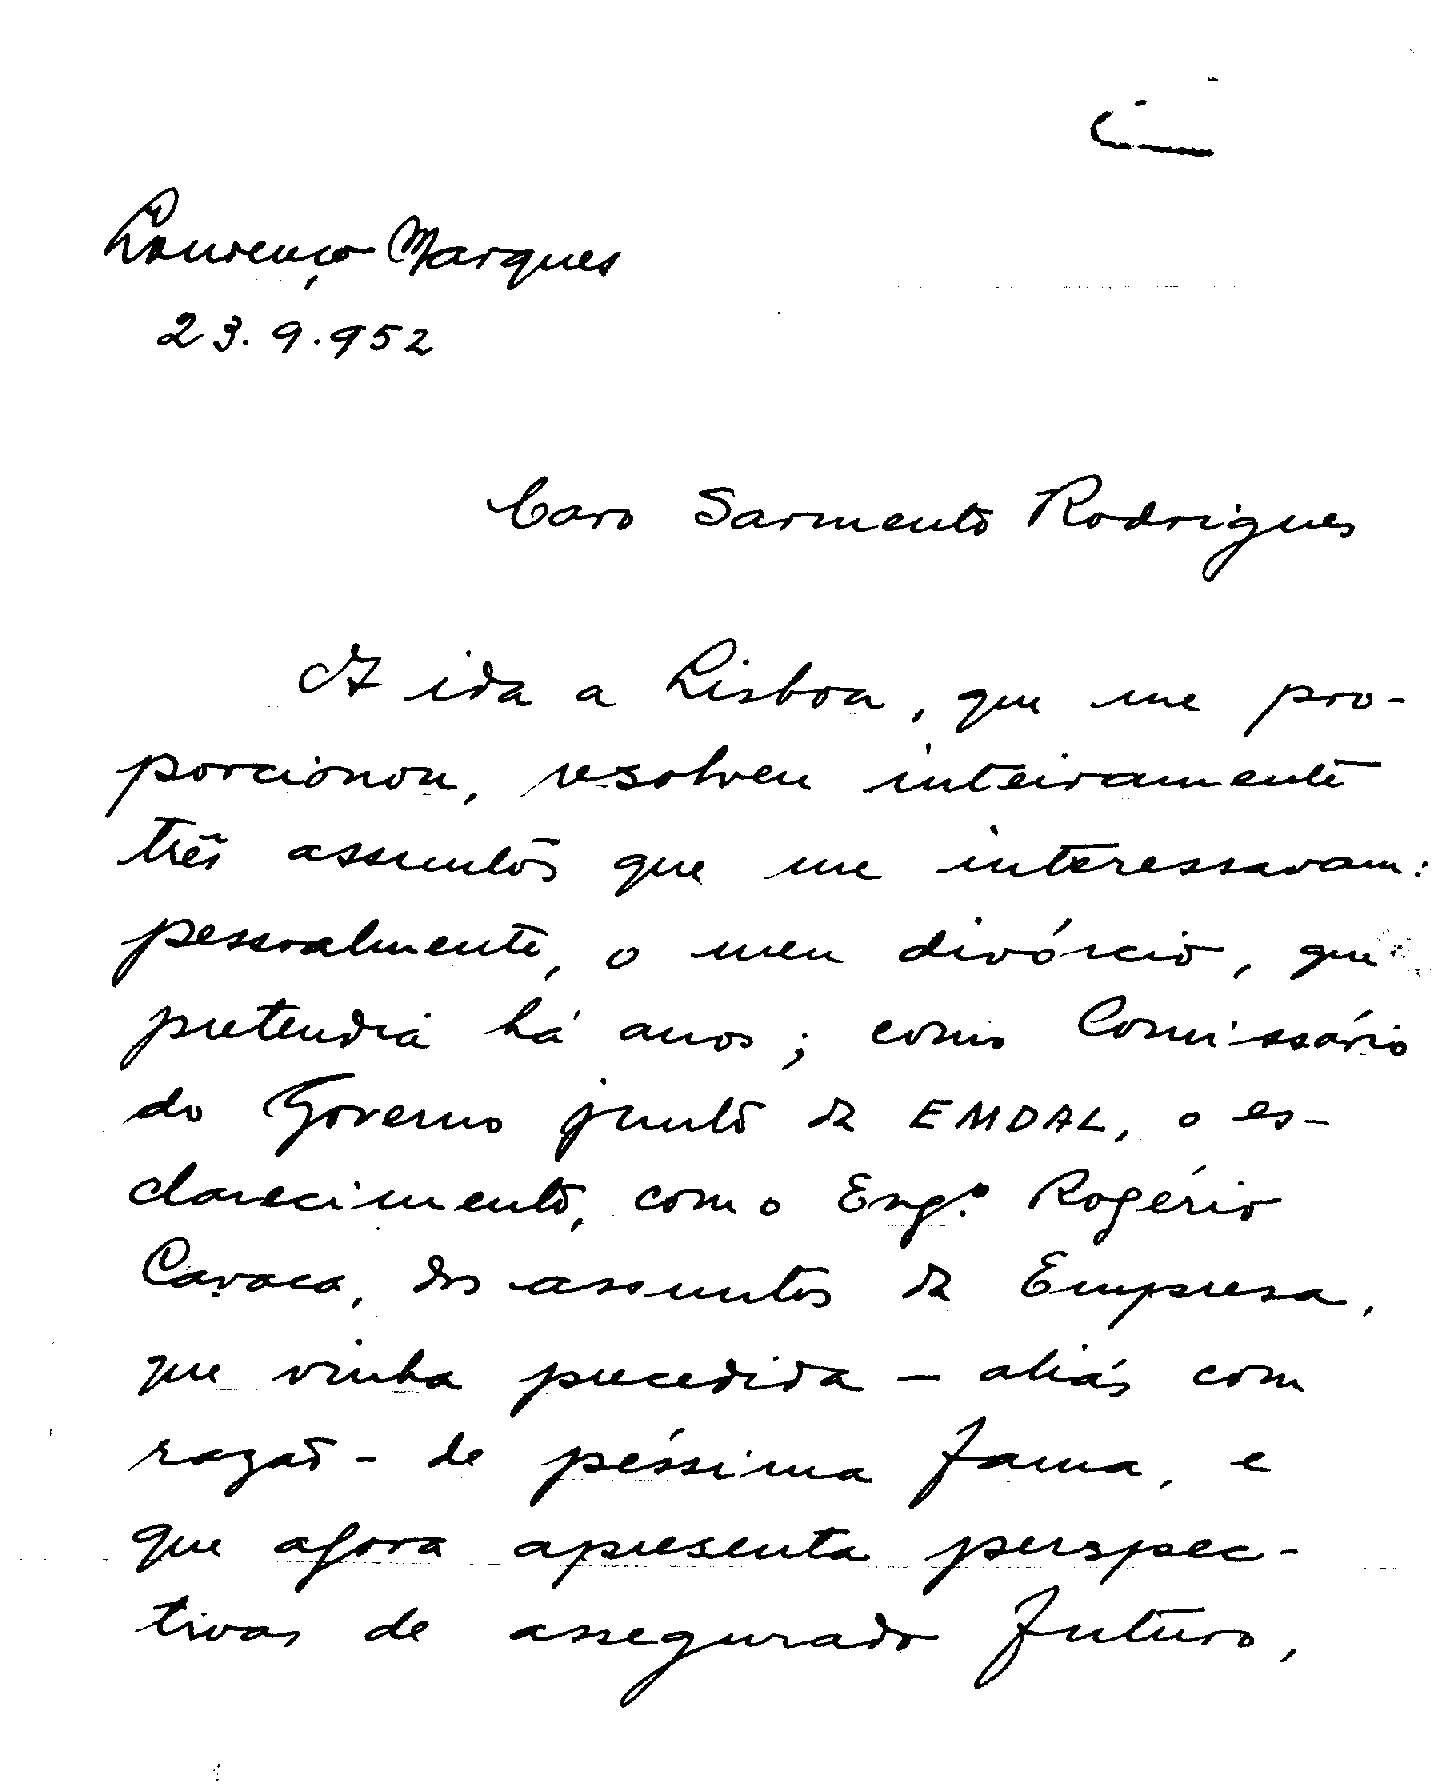 Lourenço Marques
23.9.952
Caro Sarmento Rodrigues
A ida a Lisboa, que me pro-
porcionou, resolveu inteiramente
três assuntos que me interessavam:
pessoalmente, o meu divórcio, que
pretendia há anos; como Comissário
do Governo junto da EMDAL, o es-
clarecimento, com o Engº. Rogério
Cavaca, dos assuntos da Empresa,
que vinha precedida - aliás com
razão - de péssima fama, e
que agora apresenta perspec-
tivas de assegurado futuro,